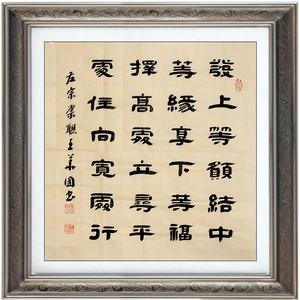 發上等願結中
等緣享下等福
擇高處立尋平
處住向寬處行
左宗棠聯王華國書